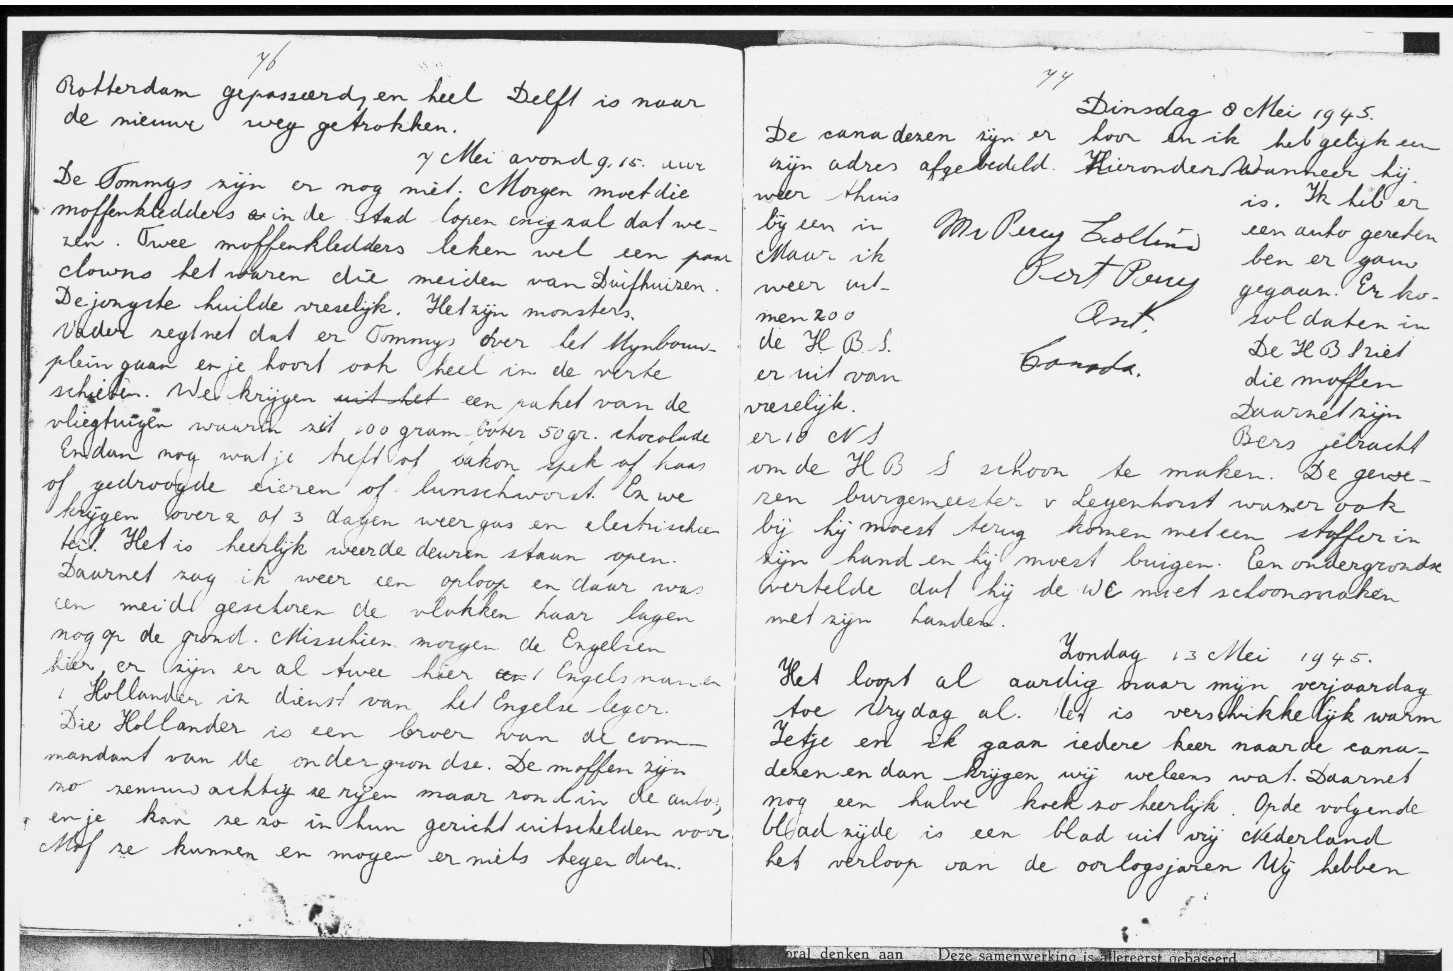 76
Rotterdam gepasseerd, en heel Delft is naar
de nieuwe weg getrokken.
7 Mei avond 9.15. uur
De Tommys zijn er nog niet. Morgen moet die
moffenkledders in de stad lopen enig zal dat we-
zen. Twee moffenkledders leken wel een paar
clowns het waren die meiden van Duifhuizen.
De jongste huilde vreselijk. Het zijn monsters.
Vader zegt net dat er Tommys over het Mynbouw-
plein gaan en je hoort ook heel in de verte
schieten. We krijgen uit het een paket van de
vliegtuigen waarin zit 100 gram boter 50 gr. chocolade
En dan nog wat je treft of bakon spek of kaas
of gedroogde eieren of lunschworst. En we
krijgen over 2 of 3 dagen weer gas en electrischie
teit. Het is heerlijk weer de deuren staan open.
Daarnet zag ik weer een oploop en daar was
een meid geschoren de vlokken haar lagen
nog op de grond. Misschien morgen de Engelsen
hier, er zijn er al twee hier 1 Engelsman en
1 Hollander in dienst van het Engelse leger.
Die Hollander is een broer van de com-
mandant van de ondergrondse. De moffen zijn
zo zenuwachtig ze rijen maar rond in de auto's,
en je kan ze zo in hun gezicht uitschelden voor
Mof ze kunnen en mogen er niets tegen doen.
77
Dinsdag 8 Mei 1945.
De canadezen zijn er hoor en ik heb gelijk een
zijn adres afgebedeld. Hieronder. Wanneer hij
weer thuis is. Ik heb er
bij een in een auto gereten
Maar ik ben er gauw
weer uit- gegaan. Er ko-
men 200 soldaten in
de H B S. De H B S ziet
er uit van die moffen
vreselijk. Daarnet zijn
er 10 N S Bers gebracht
Mr Percy Collins
Port Perry
Ont.
Canada.
om de H B S schoon te maken. De gewe-
zen burgemeester v Leyenhorst was er ook
bij hij moest terug komen met een stoffer in
zijn hand en hij moest buigen. Een ondergrondse
vertelde dat hij de WC moet schoonmaken
met zijn handen.
Zondag 13 Mei 1945.
Het loopt al aardig naar mijn verjaardag
toe Vrydag al. Het is verschrikkelijk warm
Jetje en ik gaan iedere keer naar de cana-
dezen en dan krijgen wij weleens wat. Daarnet
nog een halve koek zo heerlijk. Op de volgende
bladzijde is een blad uit vrij Nederland
het verloop van de oorlogsjaren Wij hebben
oral denken aan Deze samenwerking is allereerst gebaseerd